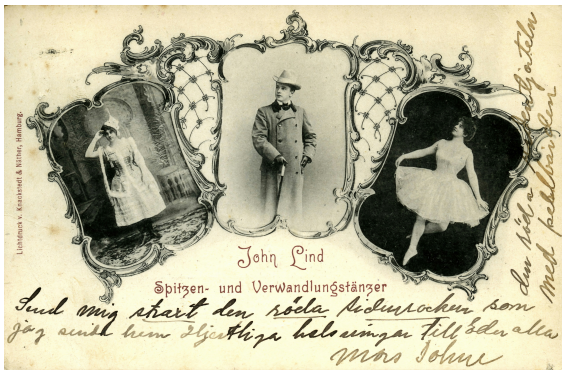 Lichtdruck v. Knackstedt & Näther, Hamburg.
John Lind
Spitzen- und Verwandlungstänzer
Send mig strax den röda sidenrocken som
jag sende hem Hjertliga helsningar till öder alla
Mårs Johne
den röda
med